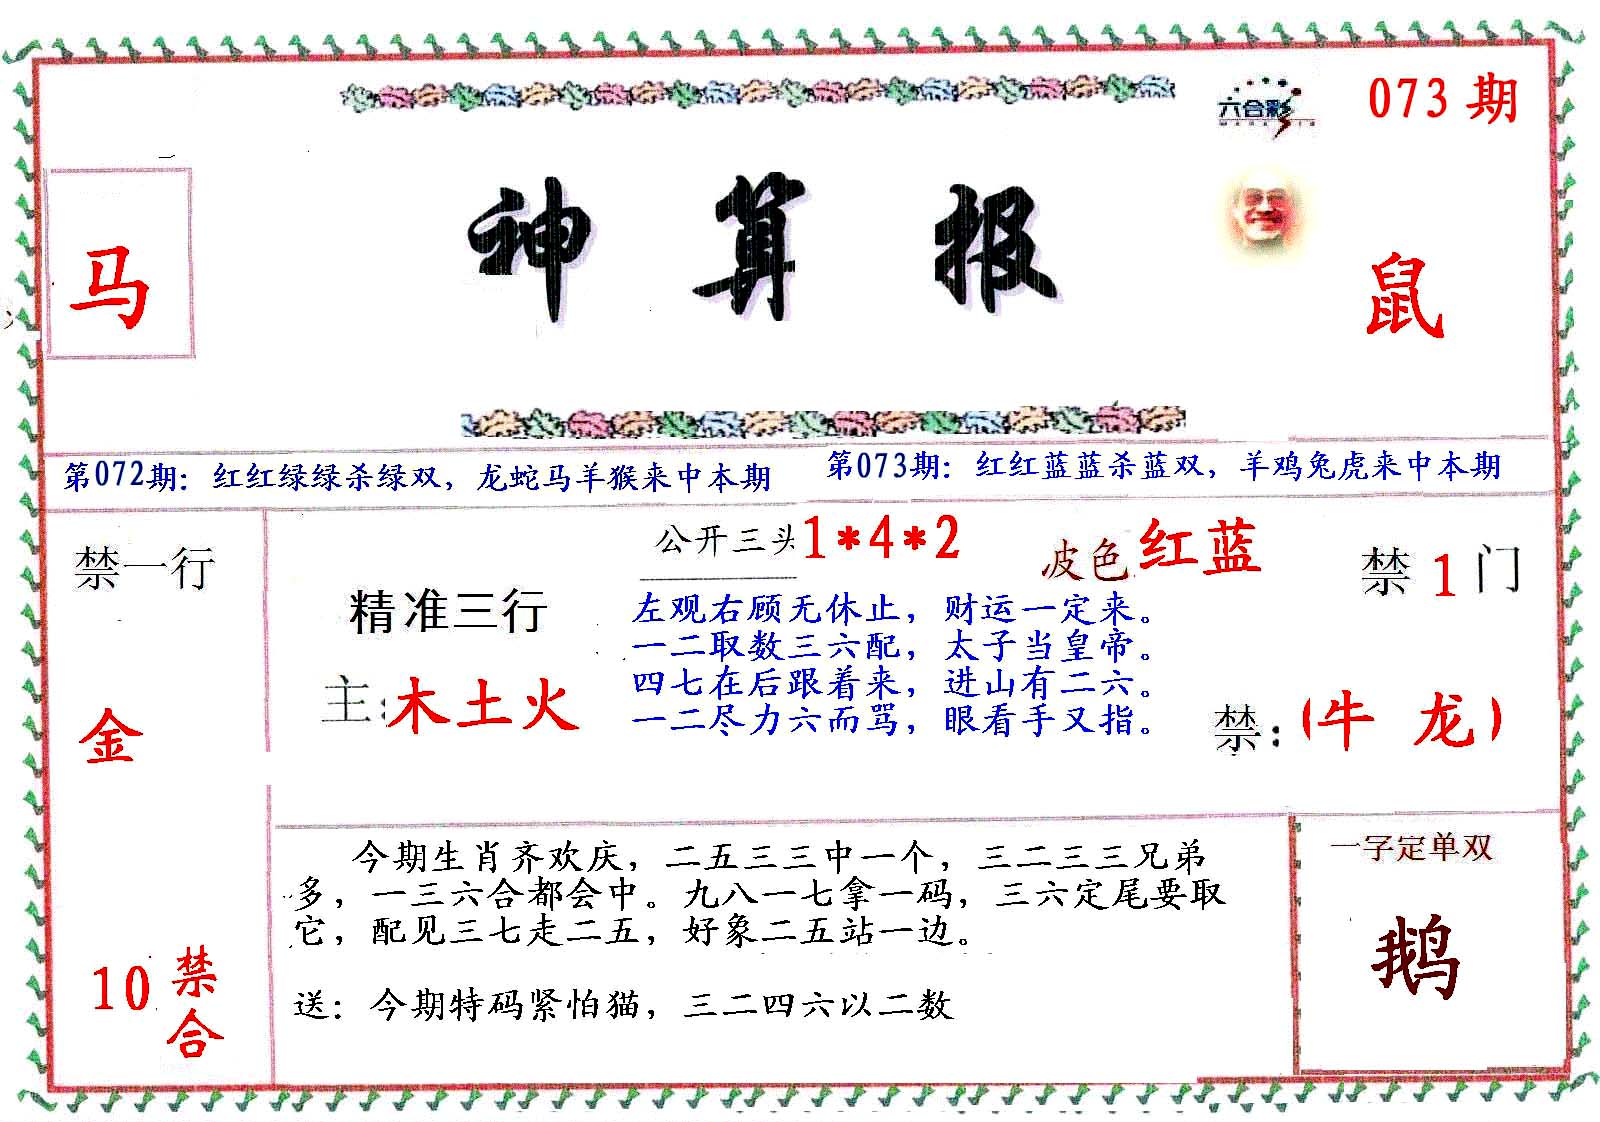 六合彩
073期
神算报
马
鼠
第072期：红红绿绿杀绿双，龙蛇马羊猴来中本期
第073期：红红蓝蓝杀蓝双，羊鸡兔虎来中本期
禁一行
金
10禁合
精准三行
主:木土火
公开三头1*4*2
波色红蓝
左观右顾无休止，财运一定来。
一二取数三六配，太子当皇帝。
四七在后跟着来，进山有二六。
一二尽力六而骂，眼看手又指。
禁1门
禁:(牛 龙)
今期生肖齐欢庆，二五三三中一个，三二三三兄弟
多，一三六合都会中。九八一七拿一码，三六定尾要取
它，配见三七走二五，好象二五站一边。
送：今期特码紧怕猫，三二四六以二数
一字定单双
鹅